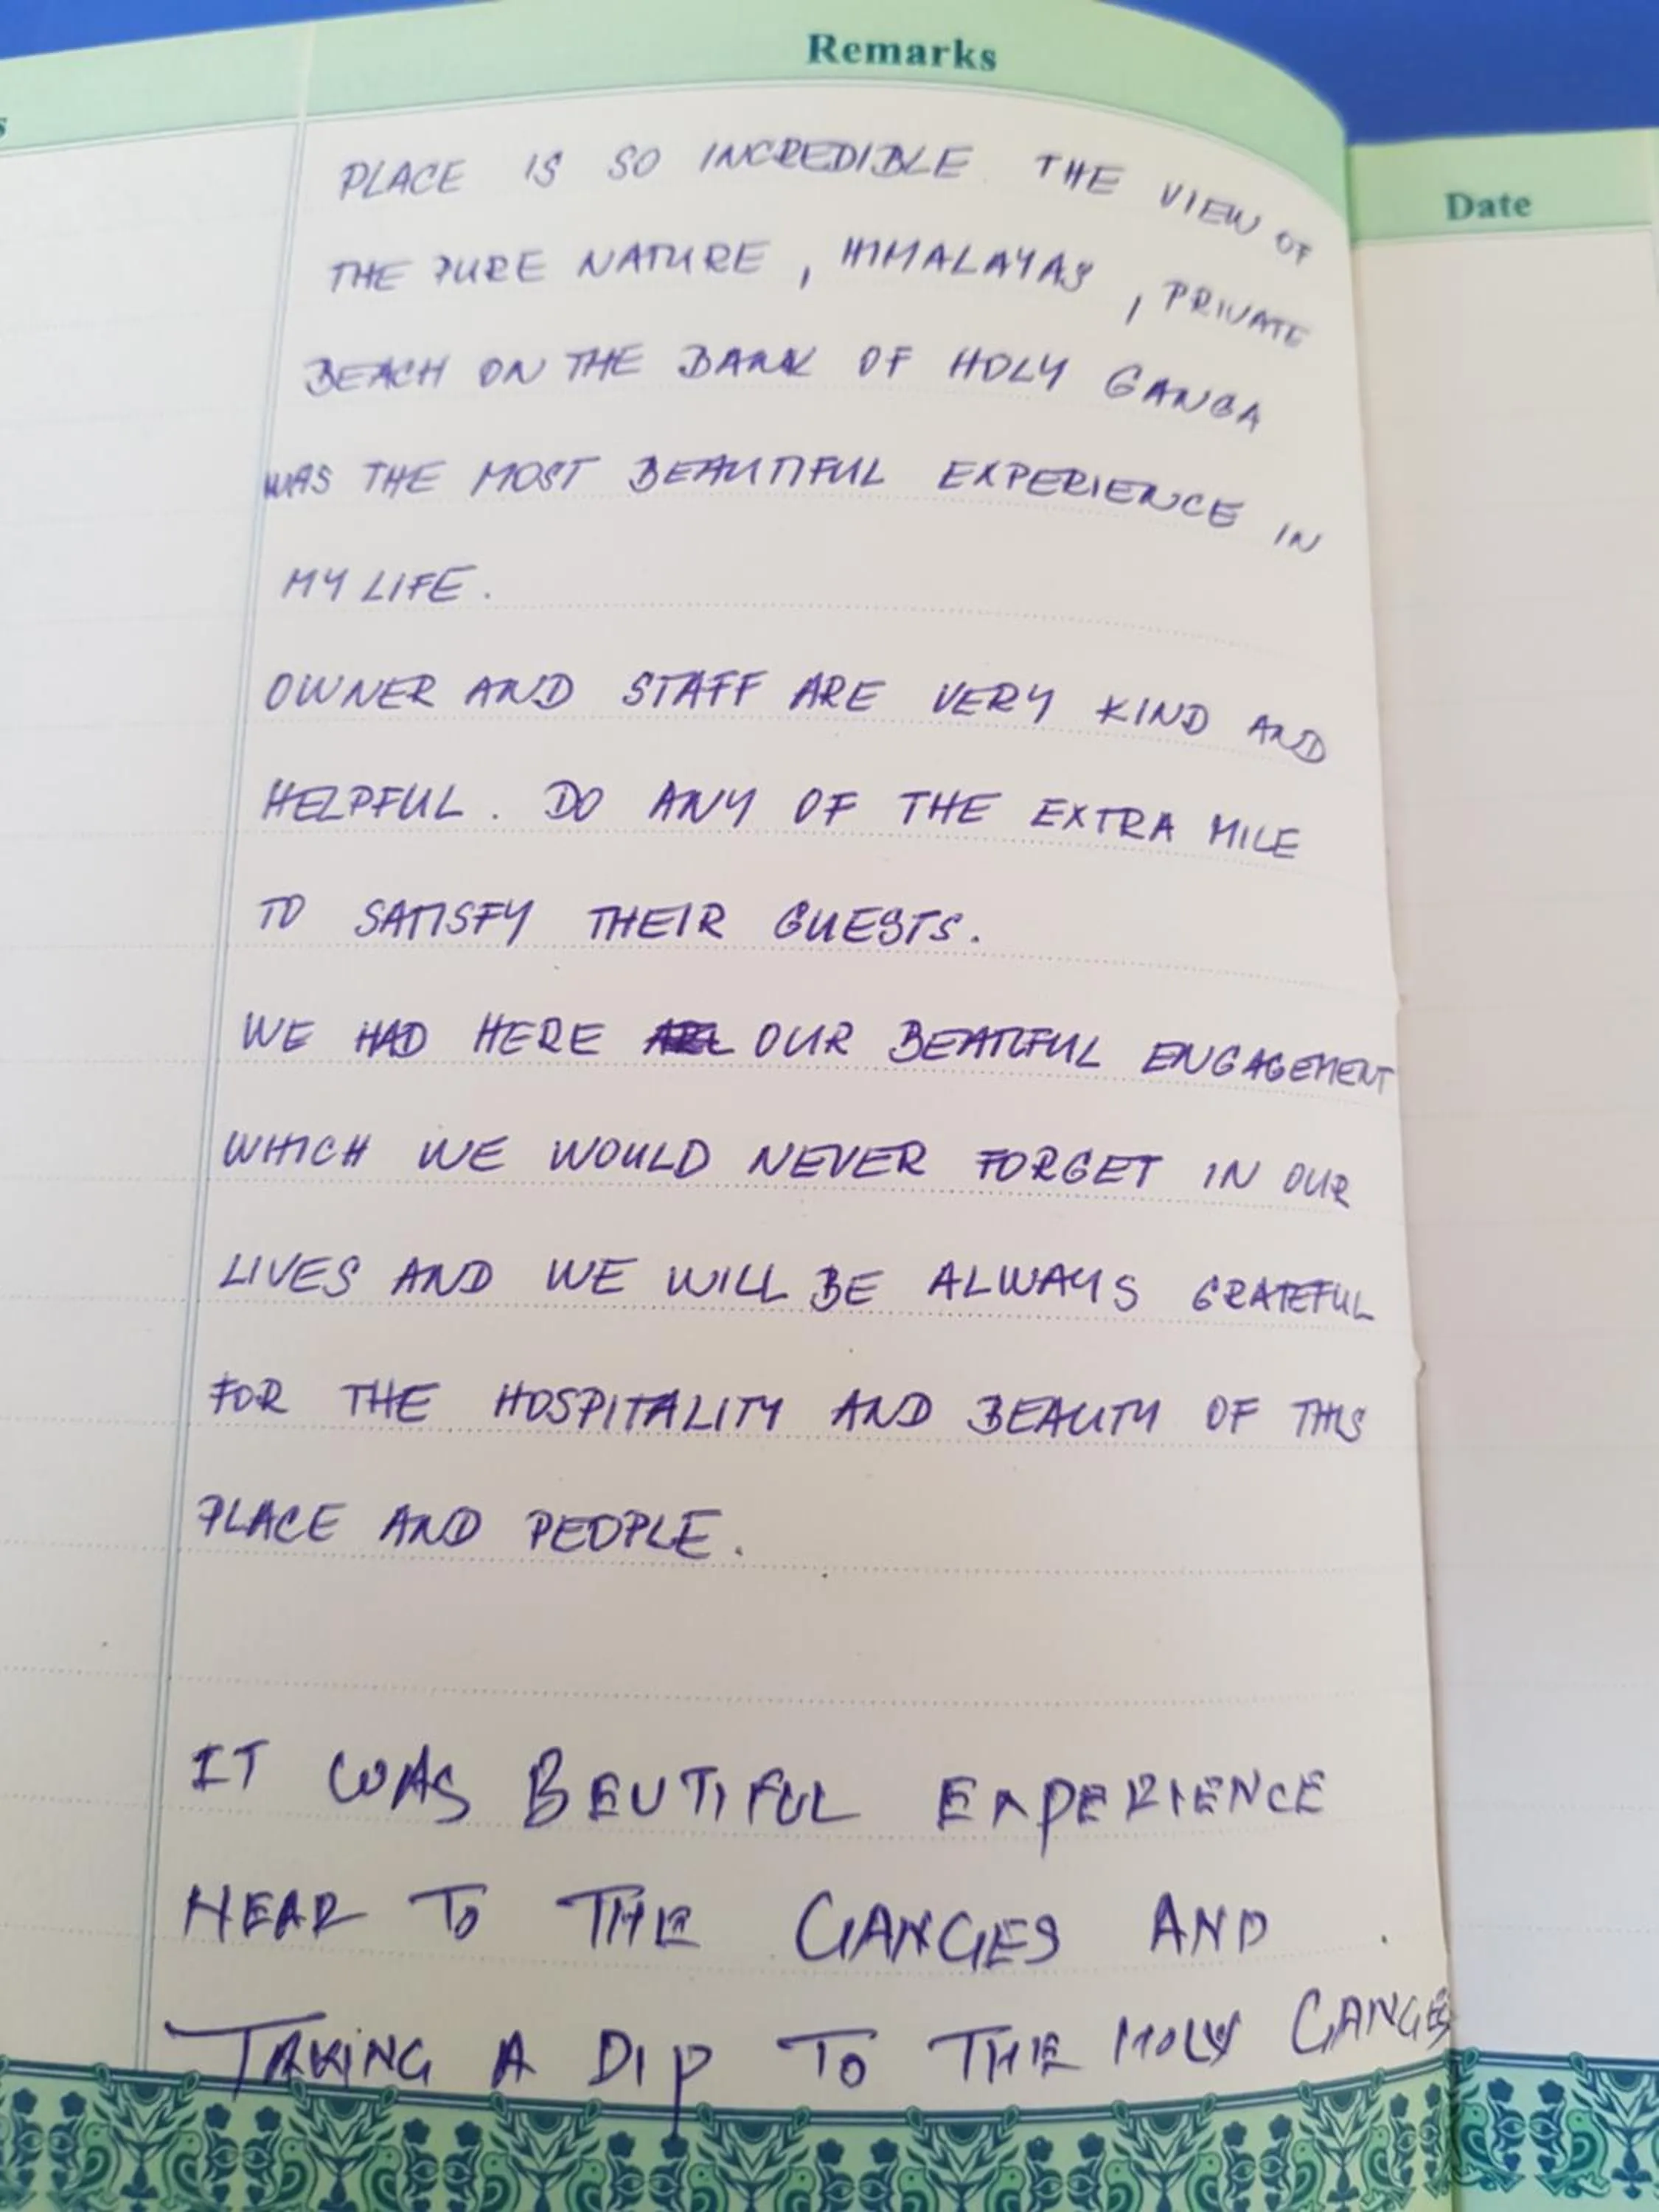 Remarks
Date
s
PLACE IS SO INCREDIBLE. THE VIEW OF
THE PURE NATURE, HIMALAYAS, PRIVATE
BEACH ON THE BANK OF HOLY GANGA
WAS THE MOST BEAUTIFUL EXPERIENCE IN
MY LIFE.
OWNER AND STAFF ARE VERY KIND AND
HELPFUL. DO ANY OF THE EXTRA MILE
TO SATISFY THEIR GUESTS.
WE HAD HERE OUR BEATIFUL ENGAGEMENT
WHICH WE WOULD NEVER FORGET IN OUR
LIVES AND WE WILL BE ALWAYS GRATEFUL
FOR THE HOSPITALITY AND BEAUTY OF THIS
PLACE AND PEOPLE.
IT WAS BEUTIFUL EXPERIENCE
NEAR TO THE GANGES AND
TAKING A DIP TO THE HOLY GANGES